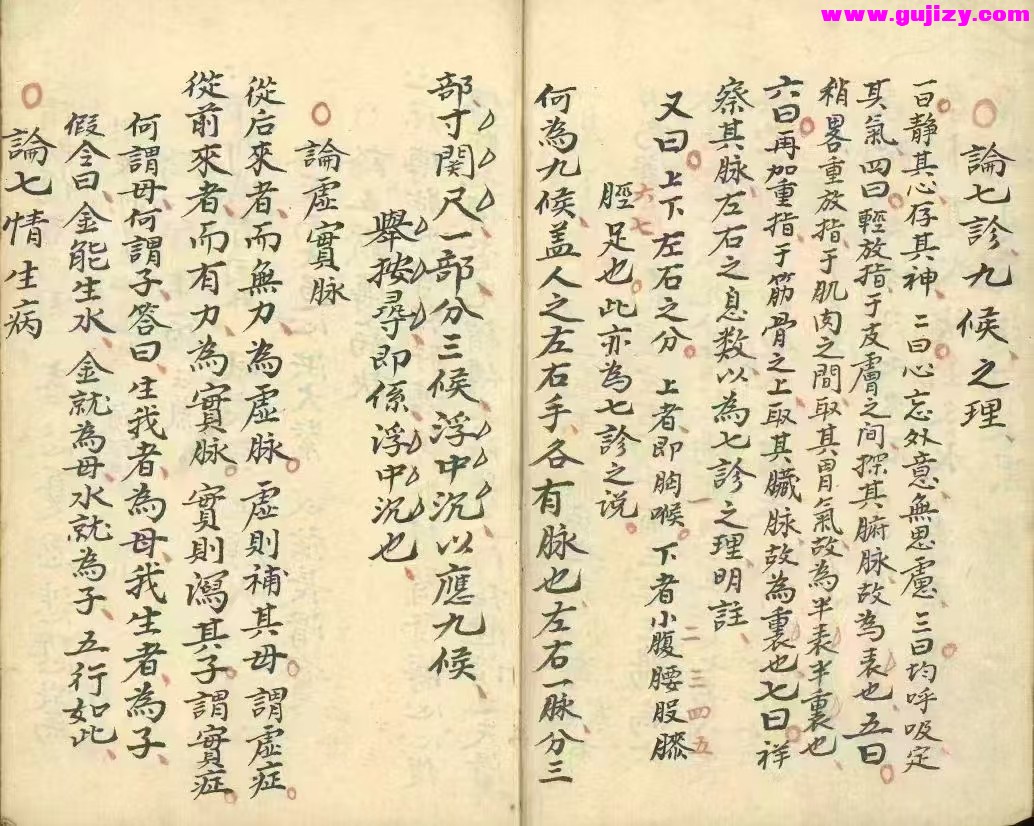 www.gujizy.com
論七診九候之理
一曰静其心存其神 二曰心忘外意無思慮 三曰均呼吸定
其氣 四曰輕放指于皮膚之间探其腑脉故為表也 五曰
稍畧重放指于肌肉之間取其胃氣故為半表半裏也
六曰再加重指于筋骨之上取其臟脉故為裏也七曰祥
察其脉左右之息数以為七診之理明註
又曰上下左右之分 上者即胸喉 下者小腹腰股膝
一 二 三 四 五
脛足也此亦為七診之说
六 七
何為九候盖人之左右手各有脉也左右一脉分三
部寸関尺一部分三候浮中沉以應九候
舉按尋即係浮中沉也
論虛實脉
從后來者而無力為虛脉 虛則補其母 謂虛症
從前來者而有力為實脉 實則瀉其子謂實症
何謂母何謂子答曰生我者為母我生者為子
假令曰金能生水 金就為母水就為子 五行如此
論七情生病